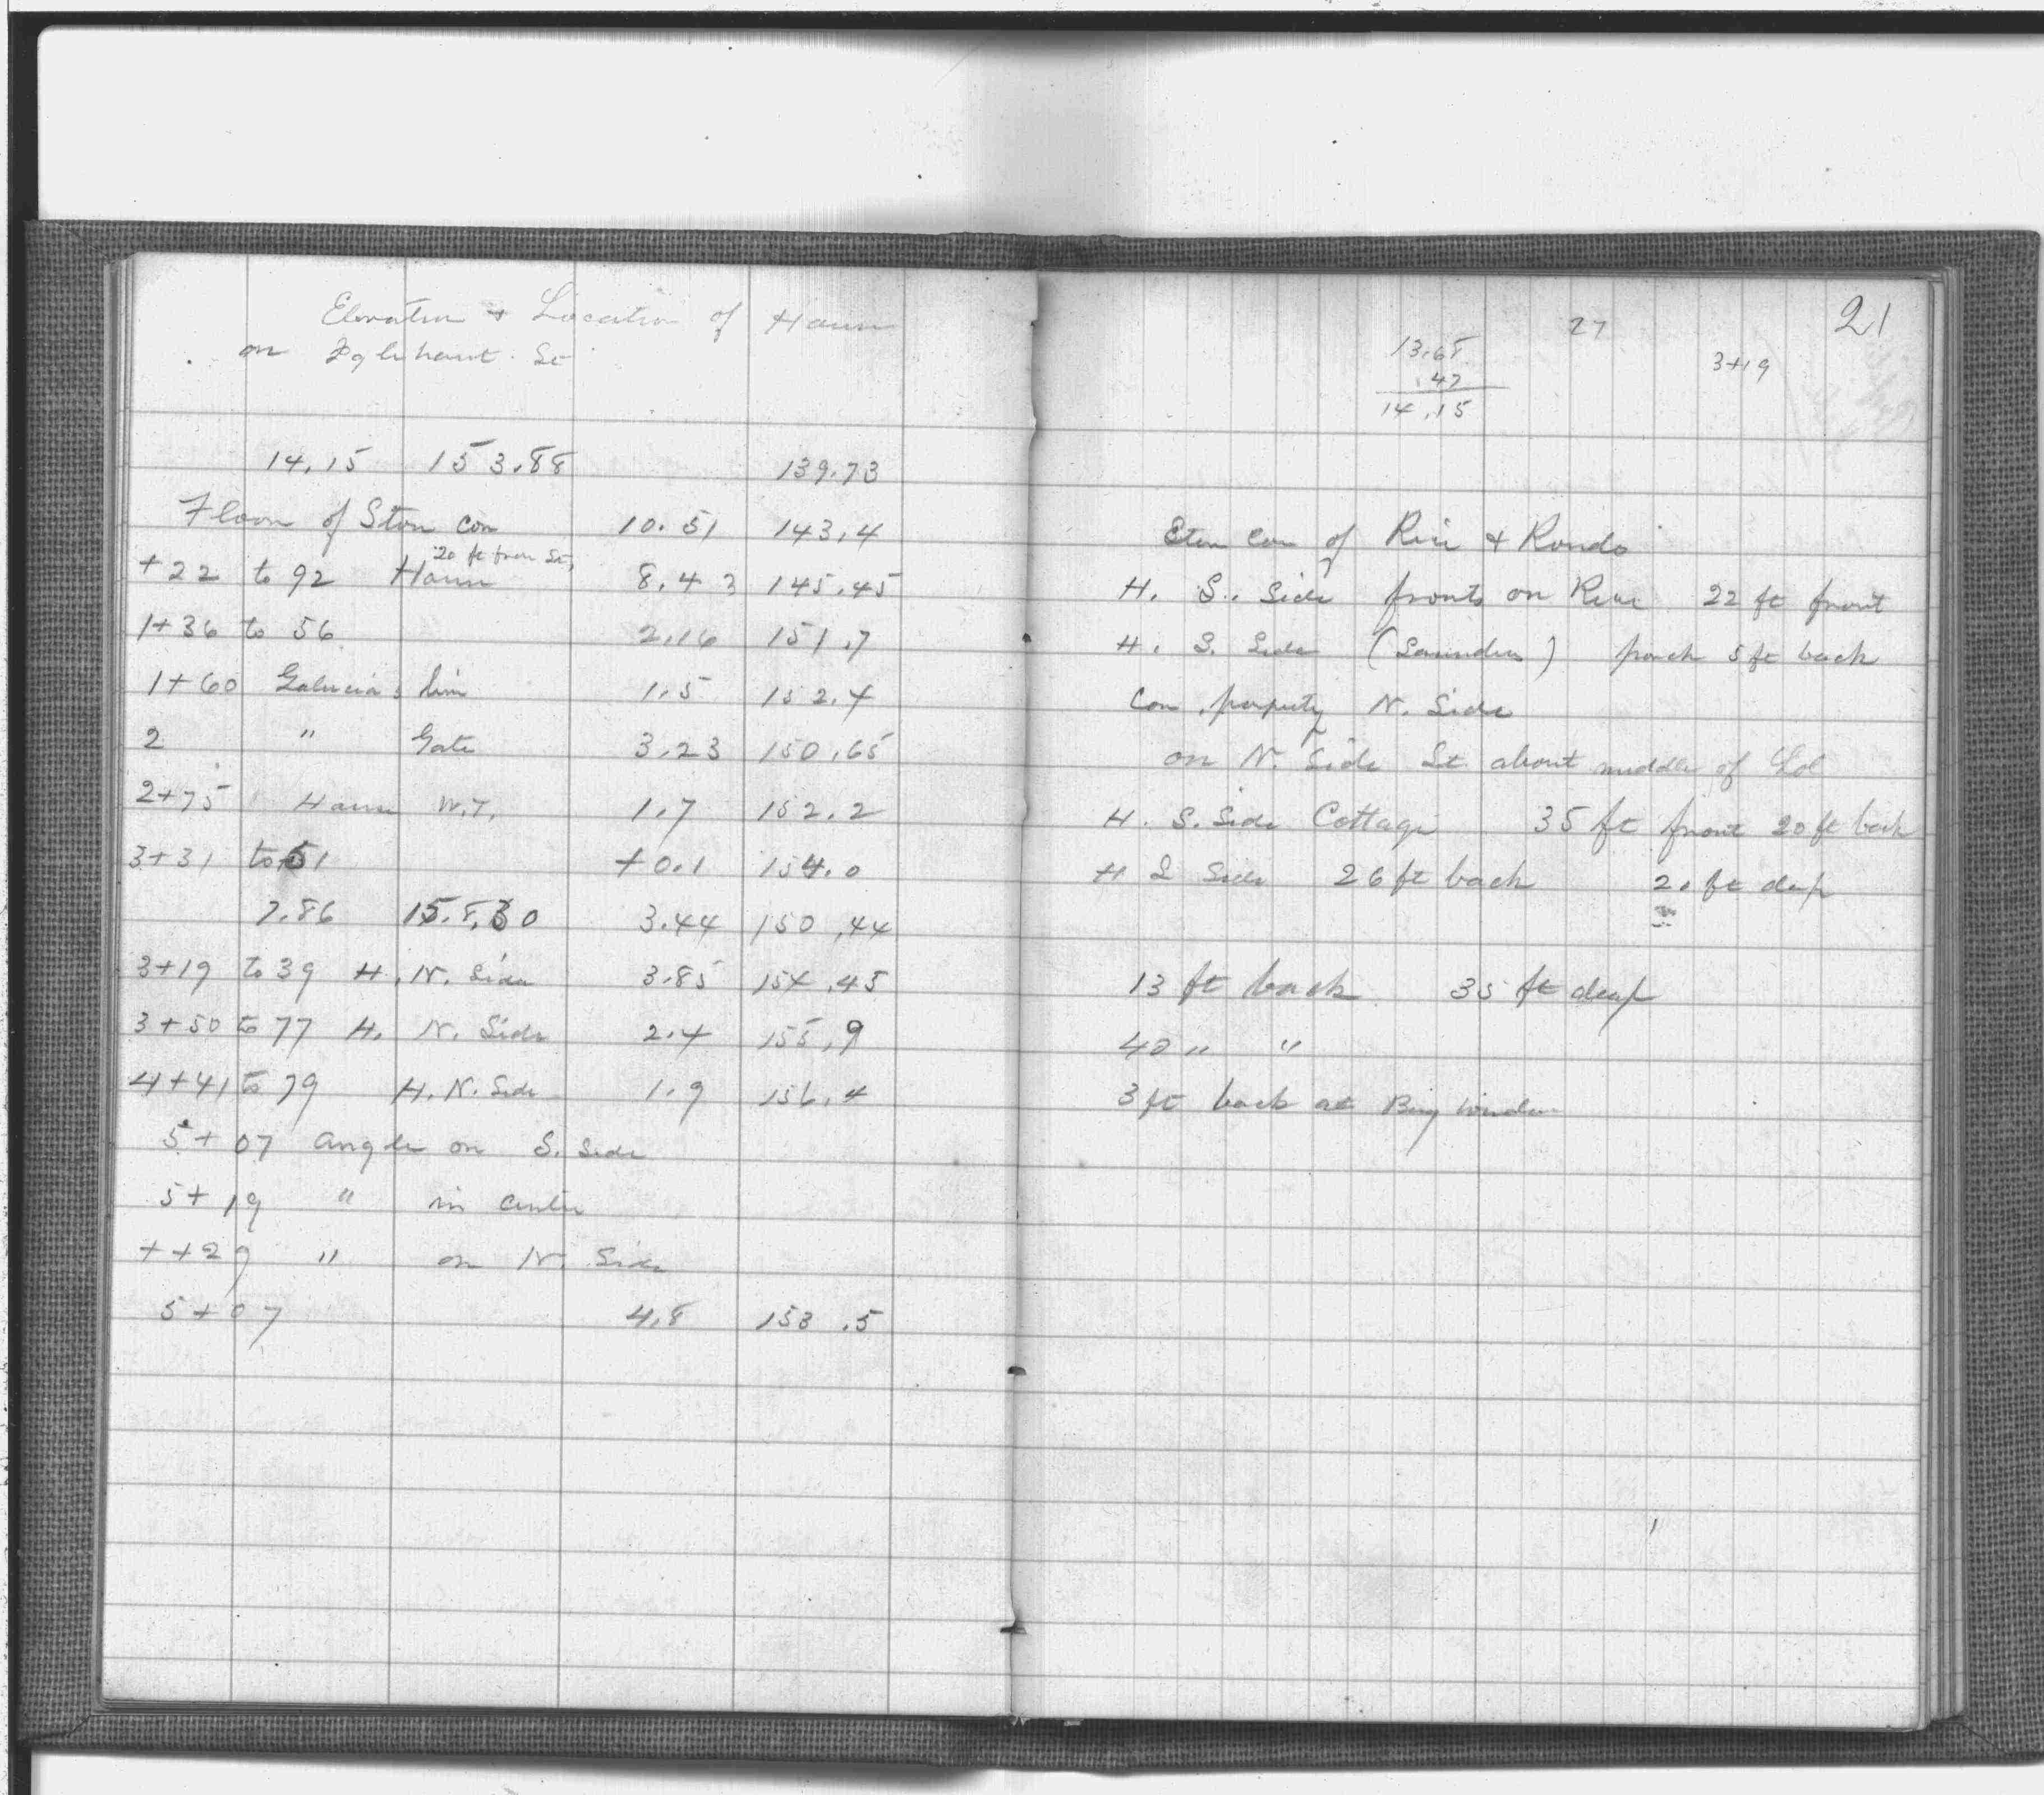 Elevation & Location of House
on Iglehart. St
14.15 153.88 139.73
Floor of Store Cor 10.51 143.4
20 ft from St,
+22 to 92 House 8.43 145.45
1+36 to 56 2.16 151.7
1+60 line 1.5 152.4
2 " Gate 3.23 150.65
2+75 House W.T. 1.7 152.2
3+31 to 51 +0.1 154.0
7.86 158.30 3.44 150.44
3+19 to 39 H. N. Side 3.85 154.45
3+50 to 77 H. N. Side 2.4 155.9
4+41 to 79 H. N. Side 1.9 156.4
5+07 angle on S. Side
5+19 " in Center
++29 " on N. Side
5+07 4.8 153.5
21
27
13.68
.47
14.15
3+19
Store Cor of Rice & Rondo
H. S. Side fronts on Rice 22 ft front
H. S. Side (Saunders) porch 5 ft back
Cor. property N. Side
on N. Side St. about middle of Lot
H. S. Side Cottage 35 ft front 20 ft back
H S Side 26 ft back 20 ft deep
13 ft back 35 ft deep
40 " "
3 ft back at Bay Window